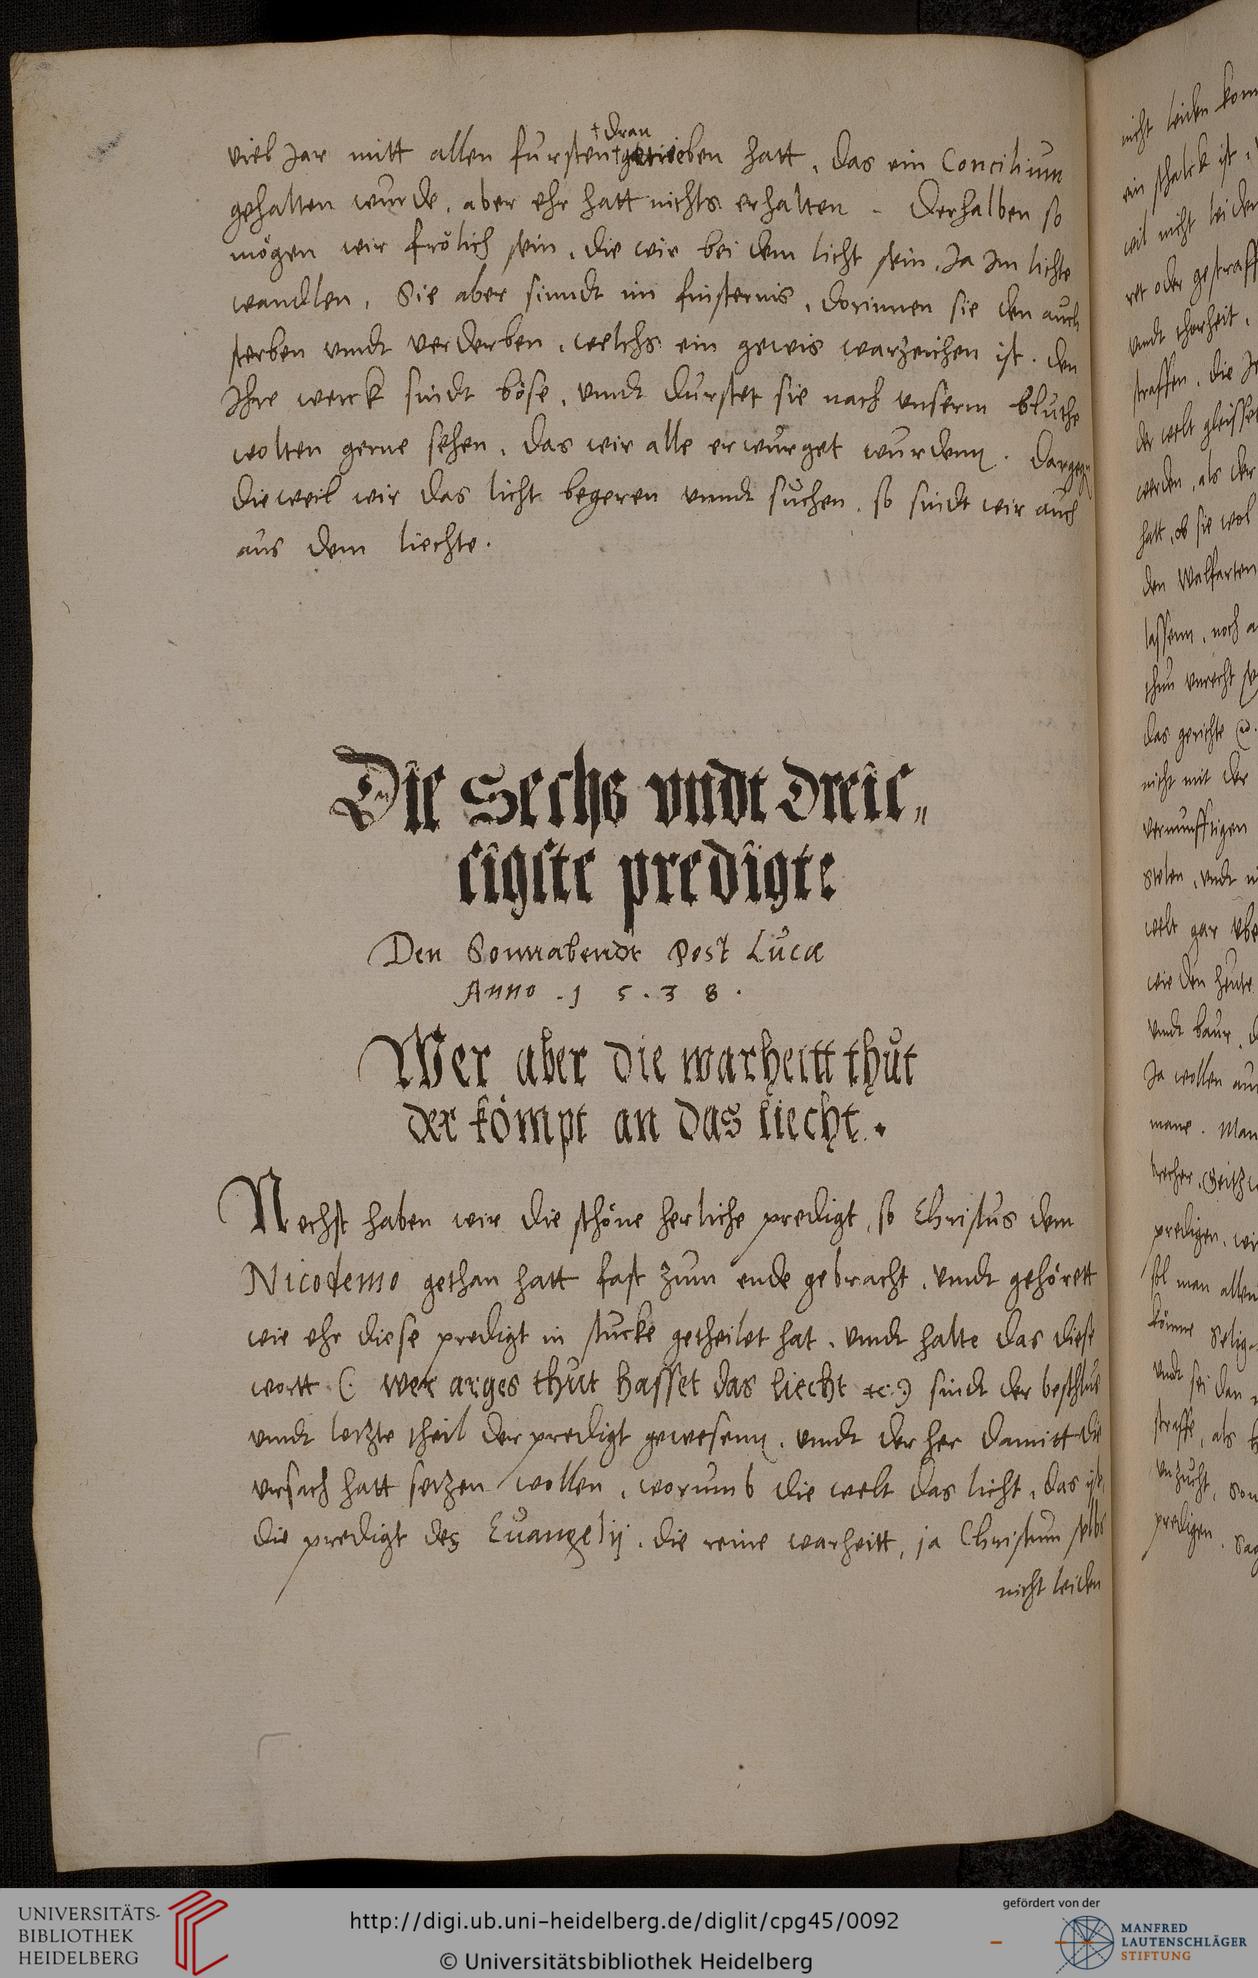 † dran
viel Jar mitt allen fursten † getrieben hatt, das ein Concilium
gehalten wurde, aber ehr hatt nichts erhalten. Derhalben so
mögen wir frölich sein, die wir bei dem licht sein, Ja Jm lichte
wandlen, Sie aber sinndt im finsternis, dorinnen sie den auch
sterben vnndt verderben, welchs ein gewis warzeichen ist. den
Jhre werck sindt böse, vnndt durstet sie nach vnserm bluthe
wolten gerne sehen, das wir alle erwurget wurdenn. Dargegen
dieweil wir das licht begeren vnndt suchen, so sindt wir auch
aus dem liechte.
Die Sechs vndt dreis„
sigste predigte
Den Sonnabendt Post Lucæ
Anno . 1 5 . 3 8 .
Wer aber die warheitt thut
der kömpt an das liecht .
Nechst haben wir die schöne herliche predigt, so Christus dem
Nicodemo gethan hatt fast zum ende gebracht, vnndt gehörett
wie ehr diese predigt in stucke getheilet hat, vnndt halte das diese
wortt (: wer arges thut hasset das liecht ec:) sindt der beschlus
vnndt letzte theil der predigt gewesenn, vnndt der her damitt die
vrsach hatt setzen wollen, worumb die welt das licht, das ist,
die predigt des Euangelij, die reine warheitt, ja Christum selbs
nicht leiden
nicht leiden
ein schalck ist,
wil nicht leiden
ret oder gestrafft
vnndt thorheit,
straffen, die
der welt
werden, als der
hatt, ob sie wol
den Walfarten
lassenn, noch
thun vnrecht
das gerichte
nicht mit der
vernunfftigen
welt gar
wie den heute
vnndt baur,
Ja wollen
predigen, wi
sol man allen
könne selig
vndt sei dan
straffe, als
vnzucht, son
predigen.
UNIVERSITÄTS-
BIBLIOTHEK
HEIDELBERG
http://digi.ub.uni-heidelberg.de/diglit/cpg45/0092
© Universitätsbibliothek Heidelberg
gefördert von der
MANFRED
LAUTENSCHLÄGER
STIFTUNG